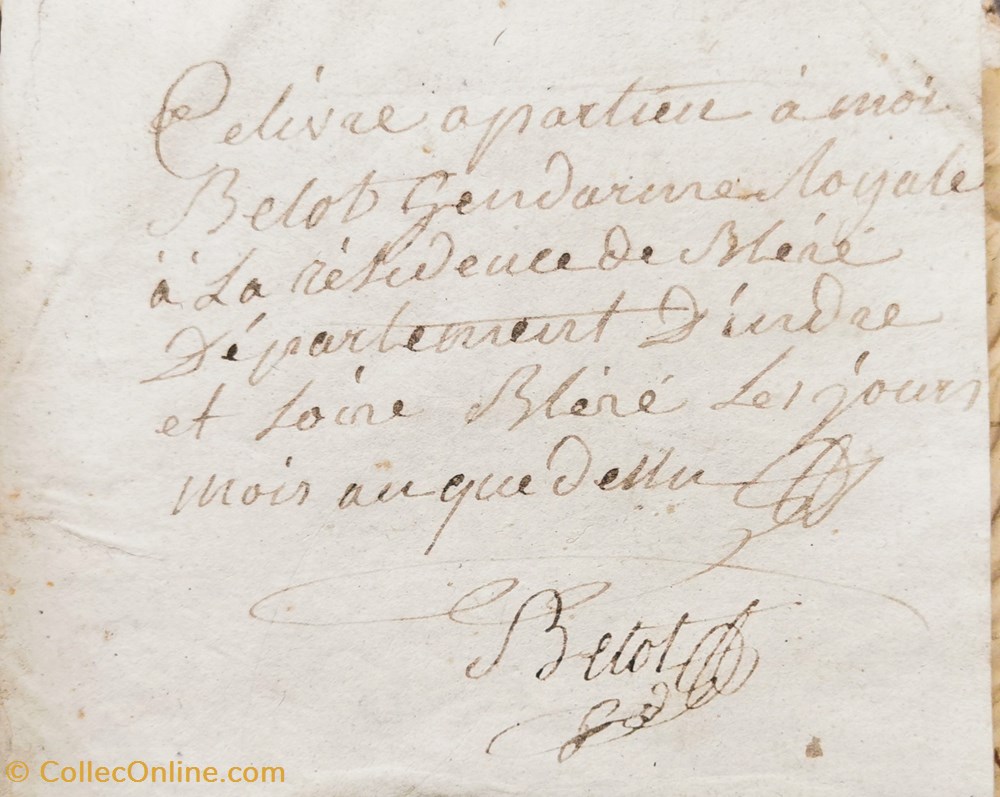 Ce livre apartien à moi
Belot Gendarme Royale
à La résidence de Bléré
Département D'indre
et Loire Bléré Les jours
mois an que dessu
Belot
© CollecOnline.com